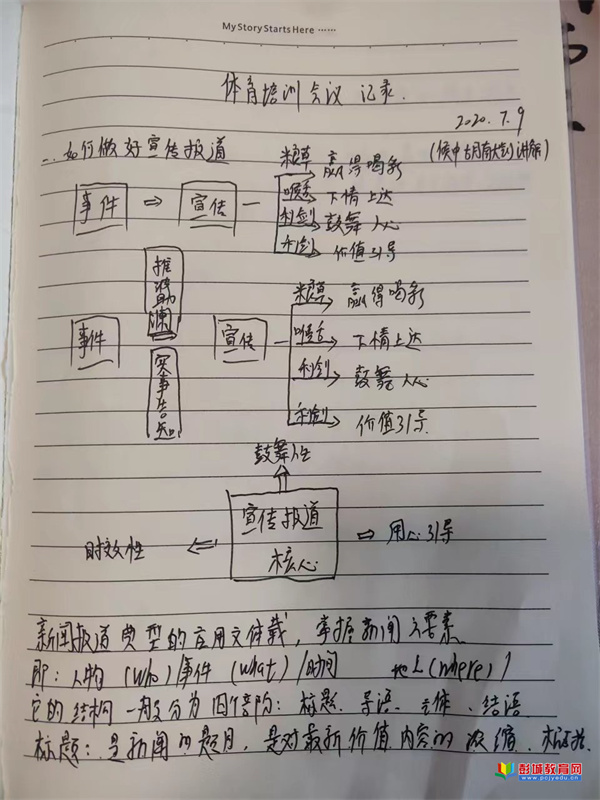 My Story Starts Here ……
体育培训会议 记录.
2020.7.9
二、如何做好宣传报道
事件 ⇒ 宣传
粮草 赢得喝彩
喉舌 下情上达
利剑 鼓舞人心
利剑 价值引导
推波助澜
事件 宣传
实事告知
粮草 赢得喝彩
喉舌 下情上达
利剑 鼓舞人心
利剑 价值引导
鼓舞性
时效性 ⇐ 宣传报道 核心 ⇒ 用心引导
新闻报道典型的应用文体载, 掌握新闻六要素
即: 人物 (who) / 事件 (what) / 时间 地点 (where) /
它的结构一般分为四个部阶: 标题、导语、主体、结语
标题: 是新闻的题目, 是对最新价值内容的浓缩、
彭城教育网
www.pcjyedu.cn